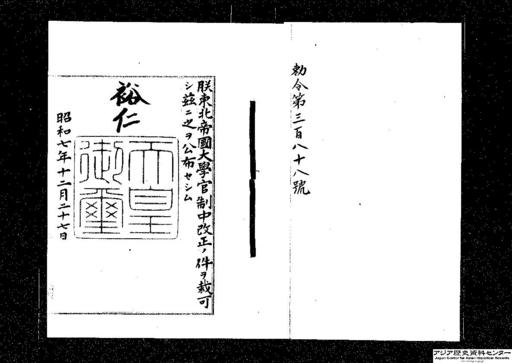 勅令第三百八十八號
朕東北帝國大學官制中改正ノ件ヲ裁可
シ茲ニ之ヲ公布セシム
裕仁
天皇
御璽
昭和七年十二月二十七日
アジア歴史資料センター
Japan Center for Asian Historical Records